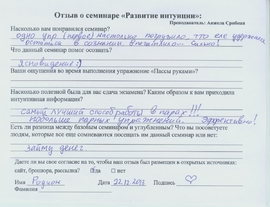 Отзыв о семинаре «Развитие интуиции»:
Преподаватель:
Насколько вам понравился семинар?
одно упр (первое) настолько что еле
в сознании Сильно!
Чем семинар помог осознать?
Ясновидение?)
Ваши ощущения во время выполнения упражнения «Пассы руками»?
Насколько полезной была для вас сдача экзамена? Каким образом к вам приходила
интуитивная информация?
самый лучший способ работы в паре!!!
побольше парных упражнений. Эффективно!
Есть ли разница между базовым семинаром и углубленным? Что вы посоветуете
людям, которые все еще сомневаются посещать им данный семинар или нет:
займу денег.
Даете ли вы свое согласие на то, чтобы ваш отзыв был размещен в открытых источниках:
сайт, брошюра, рассылка? Да нет
Имя Родион Дата 22.12.2013 Подпись
Фамилия